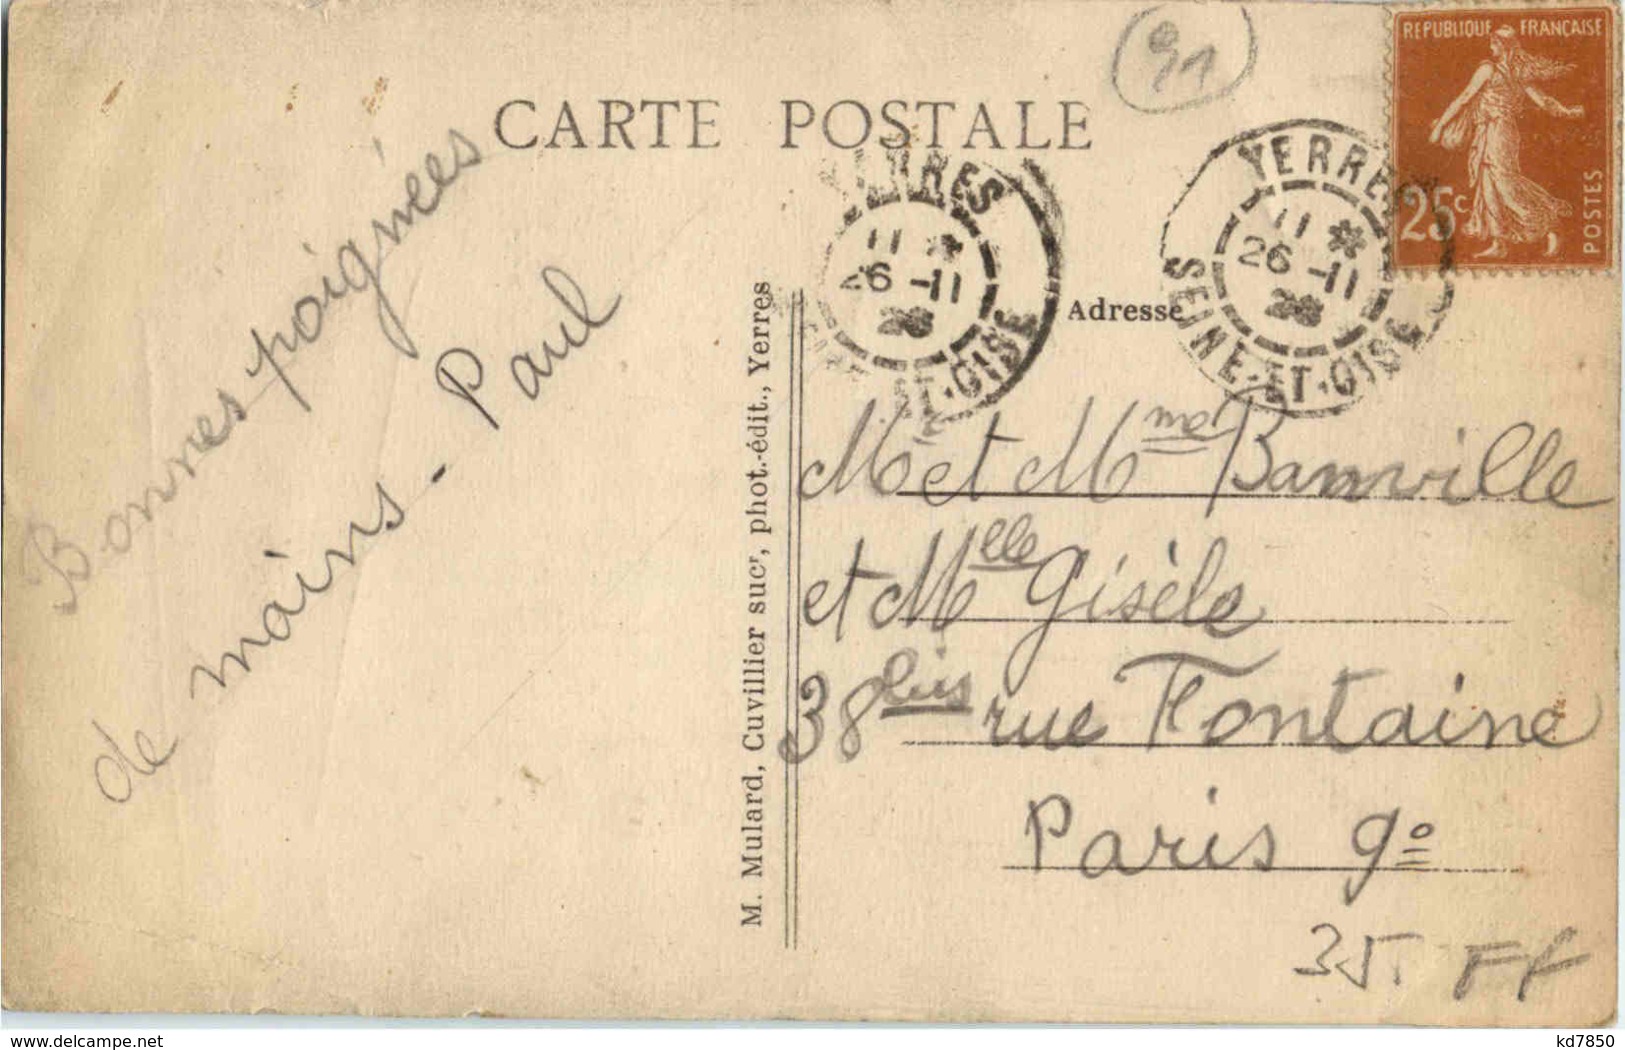 91
CARTE POSTALE
REPUBLIQUE FRANÇAISE
25c
POSTES
YERRES
11 *
26 -11
SEINE-ET-OISE
YERRES
11 *
26 -11
ET-OISE
Bonnes poignées
de mains - Paul
M. Mulard, Cuvillier sucr, phot.-édit., Yerres
Adresse
Mr et Mme Banville
et Mlle Gisèle
38 bis rue Fontaine
Paris 9º
35. FF
www.delcampe.net
kd7850